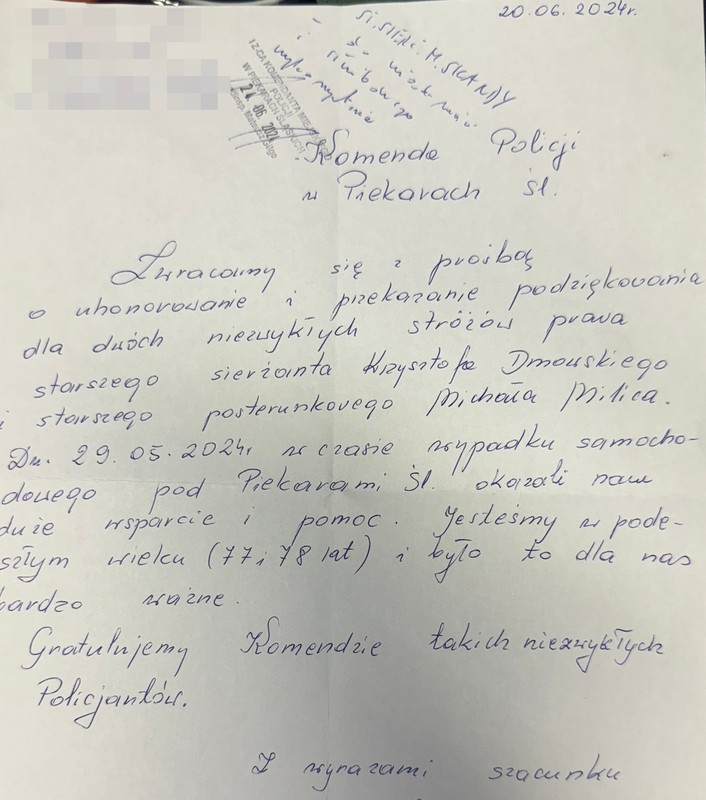 20.06.2024r.
I Z-CA KOMENDANTA MIEJSKIEGO
POLICJI
W PIEKARACH ŚLĄSKICH
2024
Komenda Policji
w Piekarach Śl.
Zwracamy się z prośbą
o uhonorowanie i przekazanie podziękowania
dla dwóch niezwykłych stróżów prawa
starszego sierżanta Krzysztofa Dmowskiego
i starszego posterunkowego Michała Milica.
Dn. 29.05.2024r w czasie wypadku samocho-
dowego pod Piekarami Śl. okazali nam
duże wsparcie i pomoc. Jesteśmy w pode-
szłym wieku (77 i 78 lat) i było to dla nas
bardzo ważne.
Gratulujemy Komendzie takich niezwykłych
Policjantów.
Z wyrazami szacunku